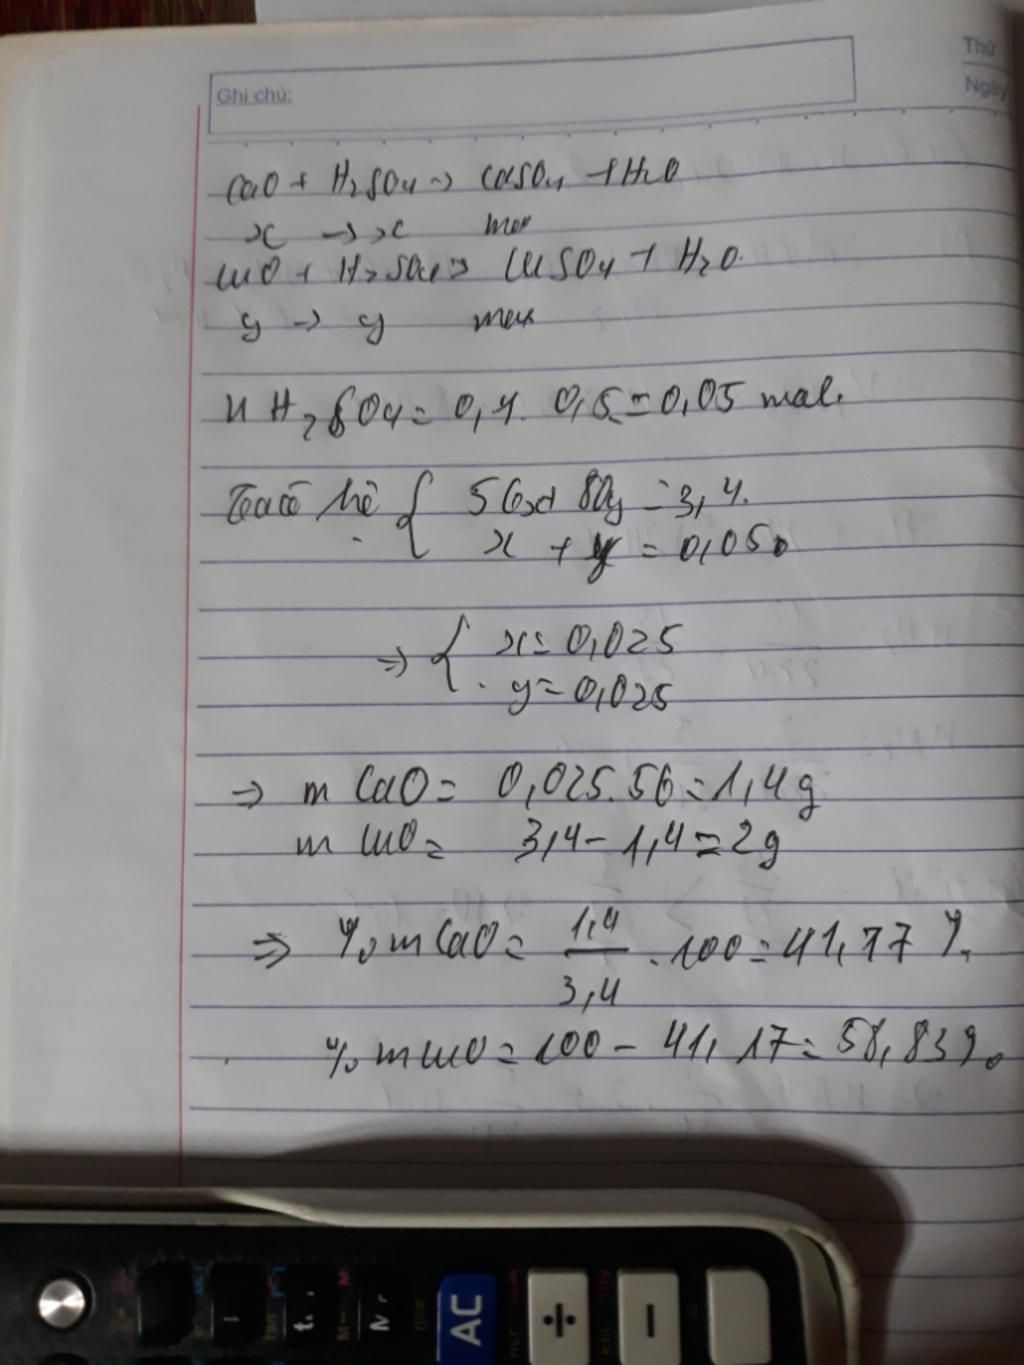 Thứ
Ghi chú:
Ngày
CaO + H₂SO₄ → CaSO₄ + H₂O
x → x mol
CuO + H₂SO₄ → CuSO₄ + H₂O.
y → y mol
nH₂SO₄ = 0,1. 0,5 = 0,05 mol.
Ta có hệ { 56x + 80y = 3,4.
x + y = 0,05
⇒ { x = 0,025
y = 0,025
⇒ m CaO = 0,025.56 = 1,4g
m CuO = 3,4 - 1,4 = 2g
⇒ % m CaO = 1,4/3,4 . 100 = 41,17 %
% m CuO = 100 - 41,17 = 58,83%
AC
÷
−